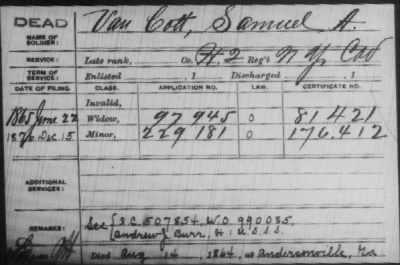 DEAD
NAME OF SOLDIER: Van Cott, Samuel A.
SERVICE: Late rank, Co. H. 2 Reg't N. Y. Cav
TERM OF SERVICE: Enlisted , 1 Discharged , 1
DATE OF FILING. CLASS. APPLICATION NO. LAW. CERTIFICATE NO.
Invalid,
1865 June 22 Widow, 97 945 0 81421
1876 Dec 15 Minor, 229 181 0 176.412
ADDITIONAL SERVICES:
REMARKS: See S.C. 507854, W.O. 990085,
Andrew J Burr, H, U.S.S.S.
Died Aug 14, 1864, at Andersonville, Ga